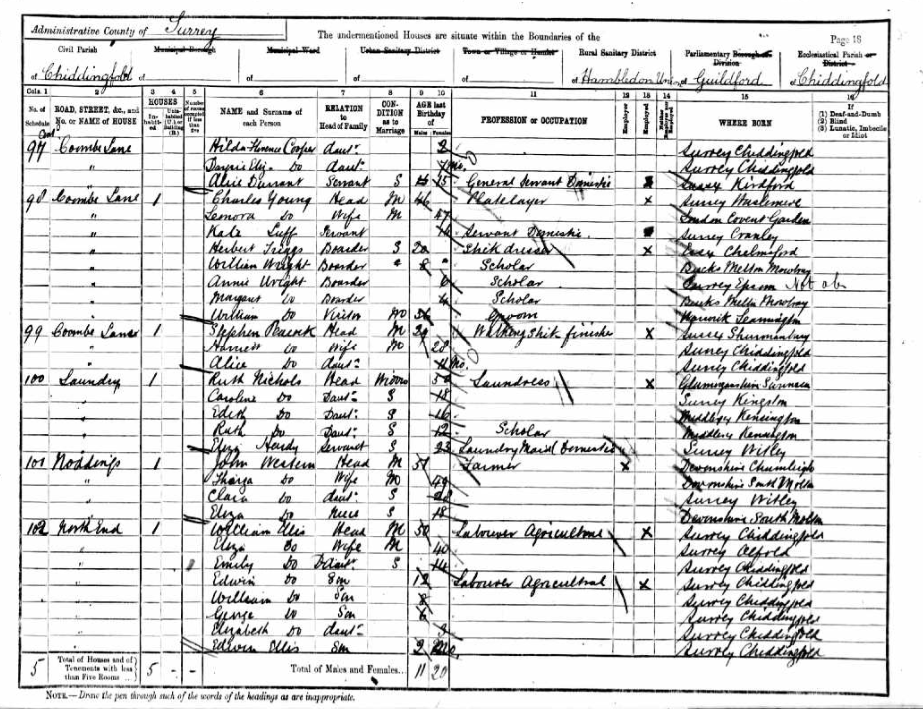 Administrative County of Surrey
The undermentioned Houses are situate within the Boundaries of the
Page 18
Civil Parish
Municipal Borough
Municipal Ward
Urban Sanitary District
Town or Village or Hamlet
Rural Sanitary District
Parliamentary Borough or Division
Ecclesiastical Parish or District
of Chiddingfold of of of of of Hambledon Union of Guildford of Chiddingfold
Cols. 1 2 3 4 5 6 7 8 9 10 11 12 13 14 15 16
No. of Schedule
ROAD, STREET, &c., and No. or NAME of HOUSE
HOUSES
NAME and Surname of each Person
RELATION to Head of Family
CONDITION as to Marriage
AGE last Birthday of
Males Females
PROFESSION or OCCUPATION
Employer
Employed
WHERE BORN
If (1) Deaf-and-Dumb (2) Blind (3) Lunatic, Imbecile or Idiot
97 Coombe Lane Hilda Florence Cooper Daur 2 Surrey Chiddingfold
" Eliz. Do Daur Surrey Chiddingfold
" Alice Durrant Servant S 15 General Servant Domestic Sussex Kirdford
98 Coombe Lane 1 Charles Young Head M 46 Platelayer X Surrey Haslemere
" Do Wife M 47 London Covent Garden
" Kate Luff Servant Servant Domestic Surrey Cranley
" Herbert Boarder S 20 Stick dresser X Essex Chelmsford
" William Wright Boarder " 8 Scholar Bucks Melton Mowbray
" Annie Wright Boarder 6 Scholar Surrey Epsom
" Margaret Do Boarder 4 Scholar Bucks Melton Mowbray
" William Do Visitor Groom Warwick Leamington
99 Coombe Lane 1 Stephen Peacock Head M 29 Walking Stick finisher X Sussex
" Harriett Do Wife M 28 Surrey Chiddingfold
" Alice Do Daur Mo. Surrey Chiddingfold
100 Laundry 1 Ruth Nichols Head Widow 50 Laundress X Glamorganshire Swansea
" Caroline Do Daur S 18 Surrey Kingston
" Edith Do Daur S 16 Middlesex Kensington
" Ruth Do Daur S 12 Scholar Middlesex Kensington
" Eliza Hardy Servant S 23 Laundry Maid Domestic Surrey Witley
101 Noddings 1 John Western Head M 51 Farmer X Devonshire Chumleigh
" Do Wife M 49 Devonshire South Molton
" Clara Do Daur S Surrey Witley
" Eliza Do Niece S 18 Devonshire South Molton
102 North End 1 William Ellis Head M 50 Labourer Agricultural X Surrey Chiddingfold
" Eliza Do Wife M 40 Surrey Alfold
" Emily Do Daur S 14 Surrey Chiddingfold
" Edwin Do Son 12 Labourer Agricultural X Surrey Chiddingfold
" William Do Son 8 Surrey Chiddingfold
" George Do Son 6 Surrey Chiddingfold
" Elizabeth Do Daur 3 Surrey Chiddingfold
" Edwin Ellis Son Surrey Chiddingfold
5 Total of Houses and of Tenements with less than Five Rooms 5 - - Total of Males and Females... 11 20
NOTE.—Draw the pen through such of the words of the headings as are inappropriate.